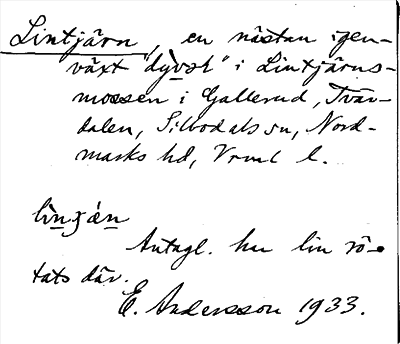 Lintjärn, en nästan igen-
växt "dyvsk" i Lintjärns-
mossen i Gallerud, Tvär-
dalen, Silbodals sn, Nord-
marks hd, Vrml l.
Antagl. har lin rö-
tats där.
E. Andersson 1933.